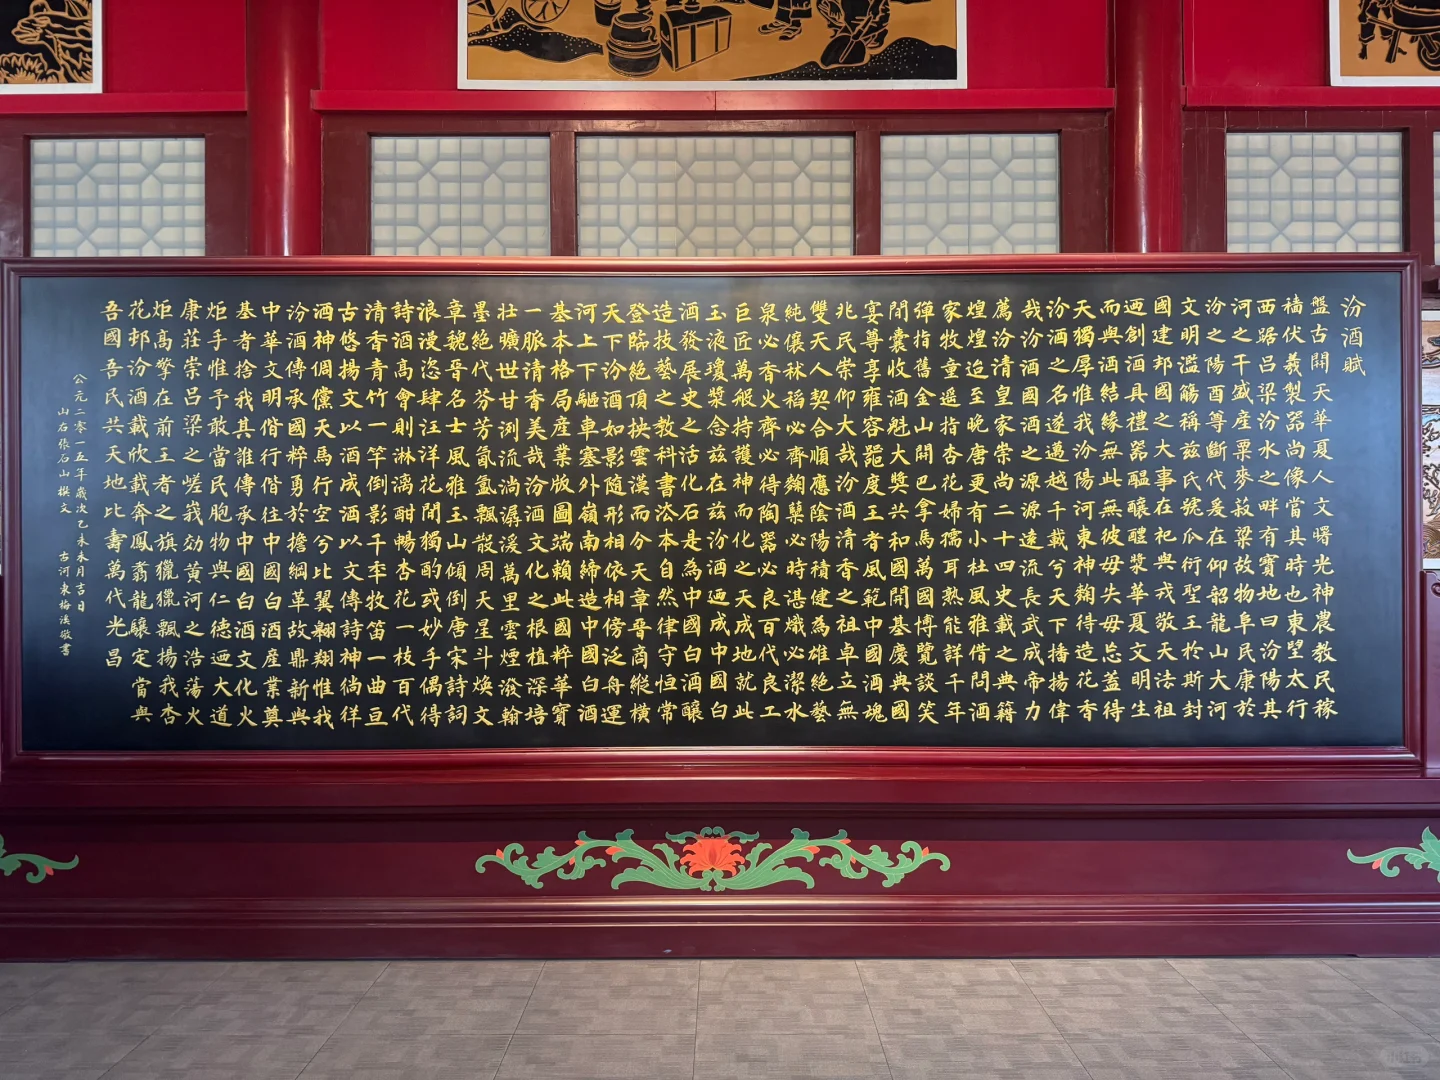 汾酒賦
盤古開天華夏人文曙光神農教民稼
穡伏羲製器尚像當其時也東望太行
西踞呂梁汾水之畔有寶地曰汾陽其
河之干盛產粟麥菽粱故物阜民康於
汾之陽酉尊斷代爰在仰韶龍山大河
文明濫觴稱茲氏號瓜衍聖王於斯封
國建邦國之大事在祀與戎敬天法祖
迺創酒具禮器醞釀醴漿華夏文明生
而與酒結緣無此無彼毋失毋忘蓋得
天獨厚惟我汾陽河東神麴得造花香
汾酒之名遂邁越千載兮天下播揚偉
哉汾酒國酒之源源遠流長武成帝力
薦汾清皇家崇尚二十四史載之典籍
煌煌迨至晚唐更有小杜風雅借問酒
家牧童遥指杏花婦孺耳熟能詳千年
彈指舊金山開巴拿馬萬國博覽談笑
間囊收酒魁大獎共和國開基慶典國
宴尊享雍容器度王者風範中國酒魂
兆民崇仰大哉汾酒清香之祖卓立無
雙天人契合順應陰陽積健為雄絕藝
純儴秫稻必齊麴櫱必時湛熾必潔水
泉必香火齊必得陶器必良百代良工
巨匠萬般持護神而化之天成地就此
玉液瓊漿念茲在茲汾酒迺成中國白
酒發展史之活化石是為中國白酒釀
造技藝之教科書法本自然律守恒常
登臨絕頂抰雲漢而分天章晉商縱橫
天下汾酒如影隨形相依相傍泛舟運
河上下驅車塞外嶺南締造中國白酒
基本格局產業版圖端賴此國粹華寶
一脈清香美哉汾酒文化之根植深培
壯曠世甘洌流淌潺湲萬里雲煙潑翰
墨絕代芬芳氤氳飄散周天星斗煥文
章魏晉名士風雅玉山傾倒唐宋詩詞
浪漫恣肆汪洋花間獨酌或妙手偶得
詩酒高會則淋漓酣暢杏花一枝百代
清香青竹一竿倒影千秊牧笛一曲亘
古悠揚文以酒成酒以文傳詩神徜徉
酒神倜儻天馬行空兮比翼翱翔惟我
汾酒傳承國粹勇於擔綱革故鼎新與
中華文明偕行偕往中國白酒產業奠
基者捨我其誰傳承中國白酒文化火
炬手惟予敢當民胞物與仁德迺大道
康莊崇呂梁之嵯峩効黃河之浩蕩火
炬高擎在前王者之旗獵獵飄揚我杏
花邨汾酒載欣載奔鳳翥龍驤定當與
吾國吾民共天地比壽萬代光昌
公元二零一五年歲次乙未未月吉日
山右張石山撰文 古河東梅溪敬書